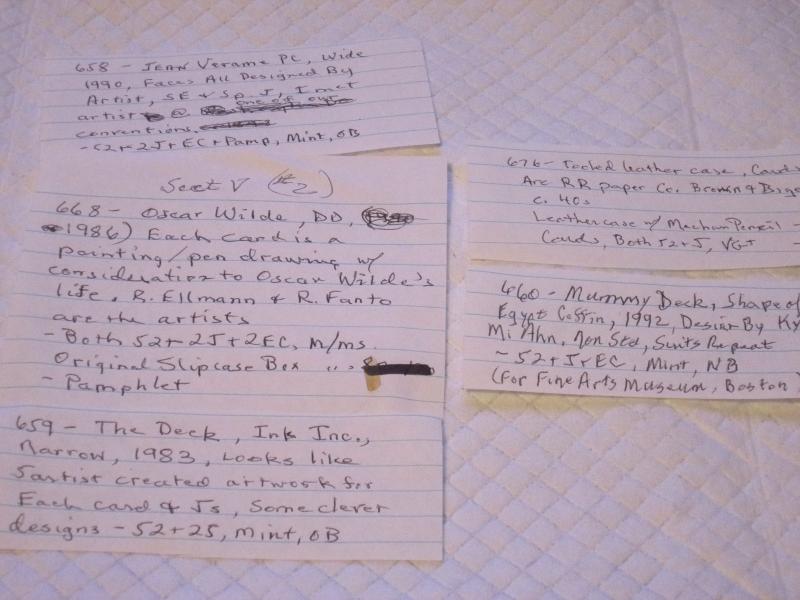 658 - Jean Verame PC, Wide
1990, Faces All Designed By
Artist, SE + Sp. J, I met
artist @ one of our
conventions.
- 52+2J+EC+Pamp, Mint, OB
Sect V (#2)
668 - Oscar Wilde, DD,
1986) Each card is a
painting/pen drawing w/
consideration to Oscar Wilde's
life. R. Ellmann & R. Fanto
are the artists
- Both 52+2J+2EC, m/ms.
Original Slipcase Box
- Pamphlet
659 - The Deck, Ink Inc.,
Narrow, 1983, Looks like
artist created artwork for
Each card & Js, Some clever
designs - 52+2S, Mint, OB
676 - Tooled leather case, Cards
Are RR paper Co. Brown & Bige
c. 40s
Leather case w/ Mechan Pencil -
Cards, Both 52+J, VG+
460 - Mummy Deck, Shape of
Egypt Coffin, 1992, Design By Ky
Mi Ahn, Non Std, Suits Repeat
- 52+J+EC, Mint, NB
(For Fine Arts Museum, Boston)